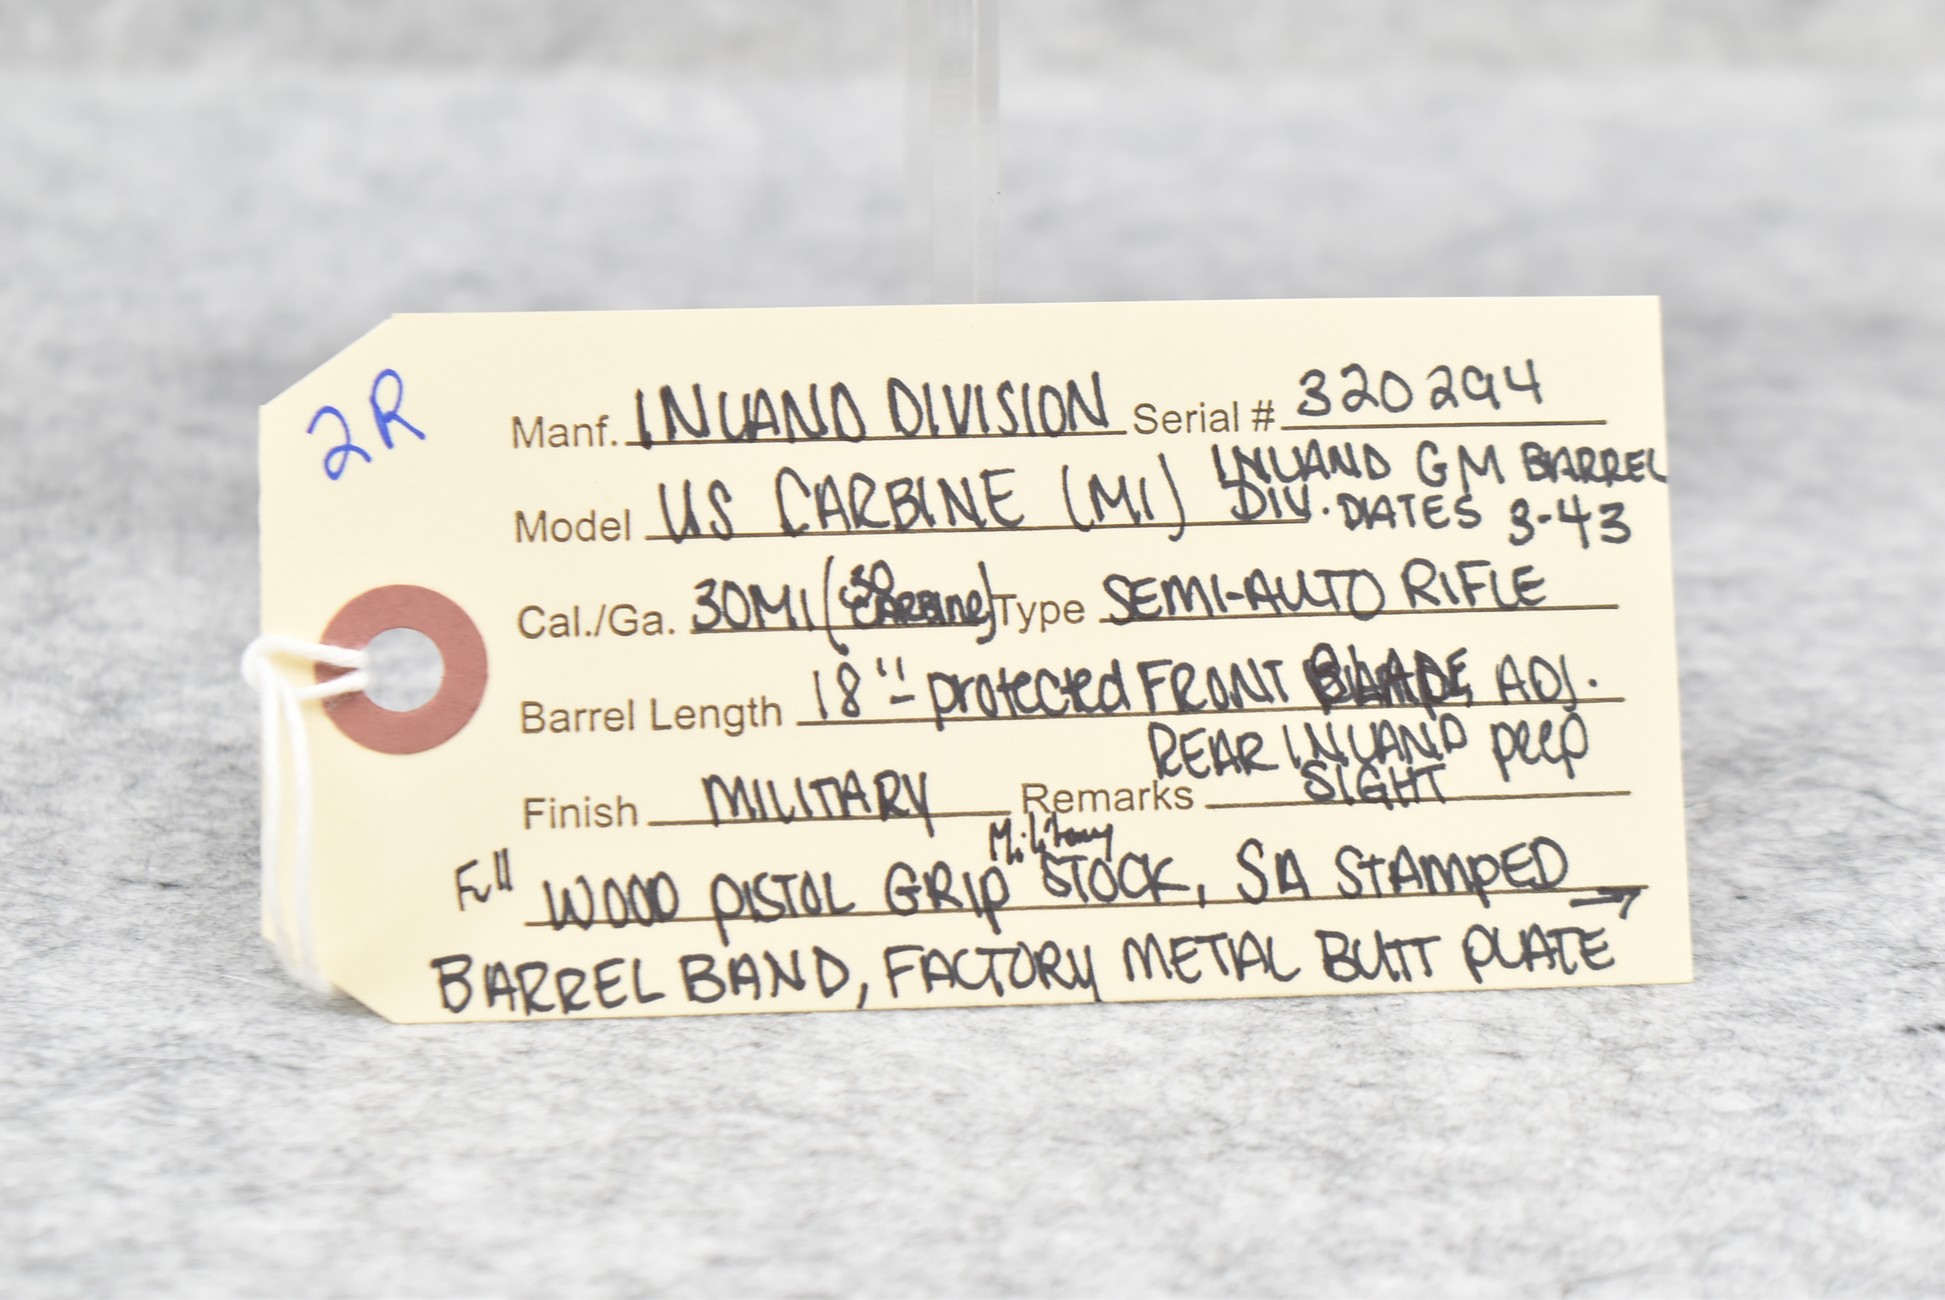 2R
Manf. INLAND DIVISION Serial # 320294
Model US CARBINE (M1) INLAND GM BARREL
DIV. DATES 3-43
Cal./Ga. 30M1 (30 CARBINE) Type SEMI-AUTO RIFLE
Barrel Length 18"- protected FRONT BLADE, ADJ.
REAR INLAND peep
Finish MILITARY Remarks SIGHT
Full WOOD PISTOL GRIP Military STOCK, SA STAMPED →
BARREL BAND, FACTORY METAL BUTT PLATE